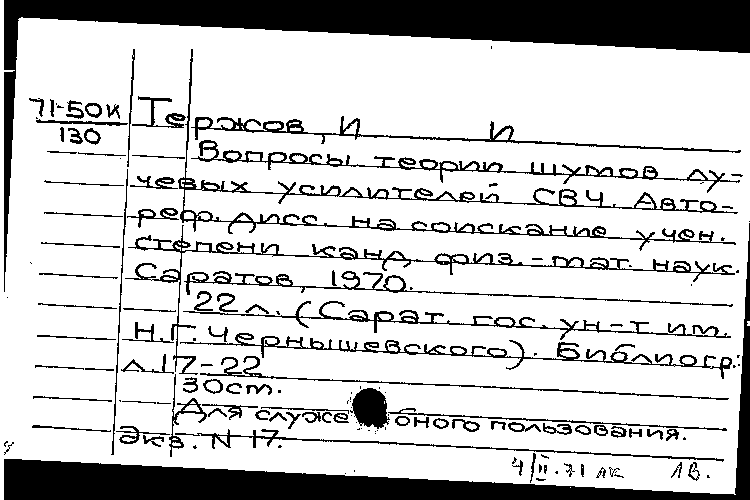 71-50К
130
Тержов, И И
Вопросы теории шумов лу-
чевых усилителей СВЧ. Авто-
реф. дисс. на соискание учен.
степени канд. физ.-мат. наук.
Саратов, 1970.
22 л. (Сарат. гос. ун-т им.
Н.Г. Чернышевского). Библиогр.:
л. 17-22
30 ст.
Для служебного пользования.
Экз. N 17.
4/II.71 ЛВ.